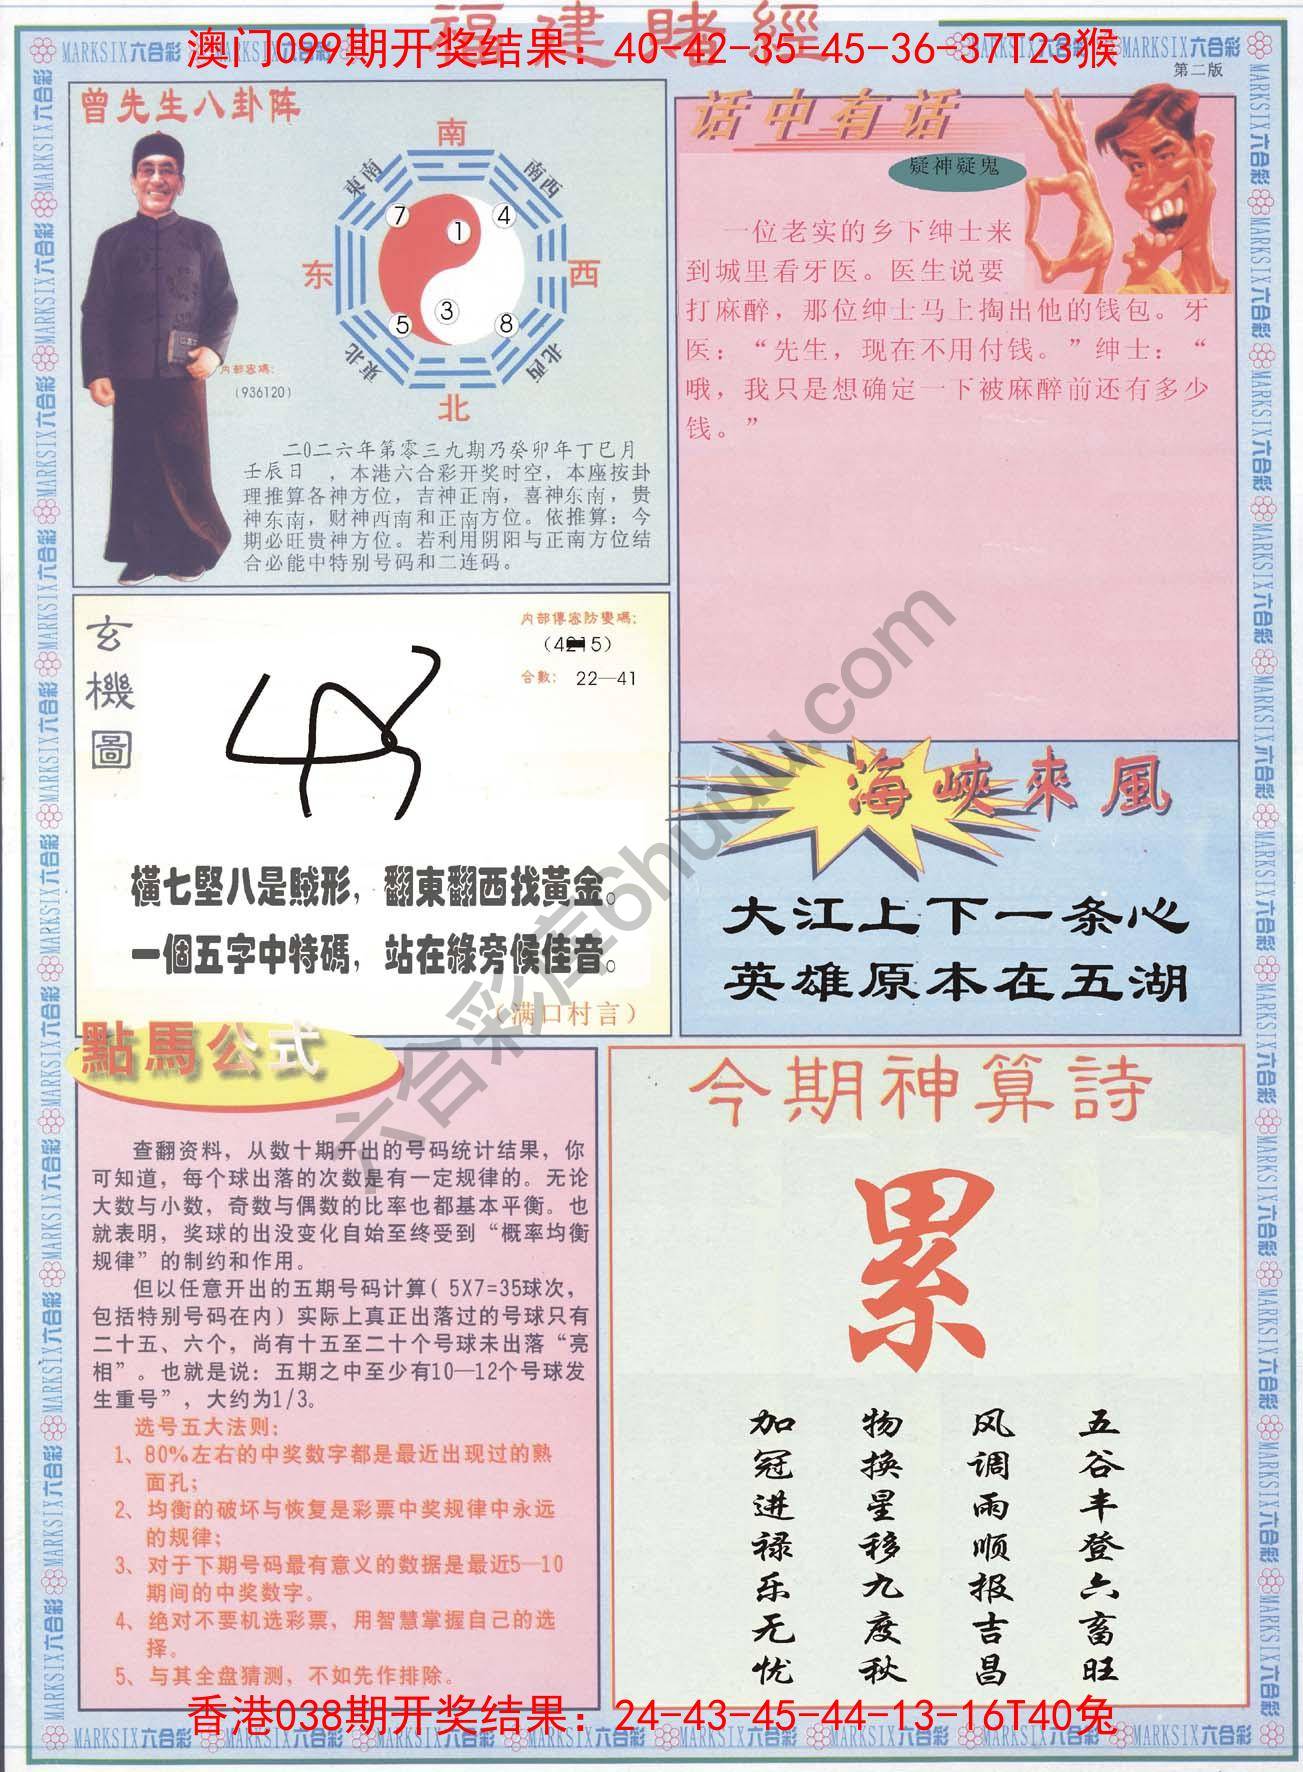 福建賭經
澳门099期开奖结果：40-42-35-45-36-37T23猴
MARKSIX六合彩
第二版
曾先生八卦阵
南
東南
南西
东
西
東北
北西
北
7
1
4
5
3
8
内部密碼：
(936120)
二0二六年第零三九期乃癸卯年丁巳月
壬辰日　，本港六合彩开奖时空，本座按卦
理推算各神方位，吉神正南，喜神东南，贵
神东南，财神西南和正南方位。依推算：今
期必旺贵神方位。若利用阴阳与正南方位结
合必能中特别号码和二连码。
话中有话
疑神疑鬼
一位老实的乡下绅士来
到城里看牙医。医生说要
打麻醉，那位绅士马上掏出他的钱包。牙
医：“先生，现在不用付钱。”绅士：“
哦，我只是想确定一下被麻醉前还有多少
钱。”
玄機圖
内部傳密防變碼：
合數：22—41
橫七堅八是賊形，翻東翻西找黃金。
一個五字中特碼，站在綠旁候佳音。
（满口村言）
海峽來風
大江上下一条心
英雄原本在五湖
點馬公式
查翻资料，从数十期开出的号码统计结果，你
可知道，每个球出落的次数是有一定规律的。无论
大数与小数，奇数与偶数的比率也都基本平衡。也
就表明，奖球的出没变化自始至终受到“概率均衡
规律”的制约和作用。
但以任意开出的五期号码计算（5X7=35球次，
包括特别号码在内）实际上真正出落过的号球只有
二十五、六个，尚有十五至二十个号球未出落“亮
相”。也就是说：五期之中至少有10—12个号球发
生重号”，大约为1/3。
选号五大法则：
1、80%左右的中奖数字都是最近出现过的熟
面孔；
2、均衡的破坏与恢复是彩票中奖规律中永远
的规律；
3、对于下期号码最有意义的数据是最近5—10
期间的中奖数字。
4、绝对不要机选彩票，用智慧掌握自己的选
择。
5、与其全盘猜测，不如先作排除。
今期神算詩
累
五谷丰登六畜旺
风调雨顺报吉昌
物换星移九度秋
加冠进禄乐无忧
六合彩库6huuu.com
香港038期开奖结果：24-43-45-44-13-16T40兔
MARKSIX六合彩